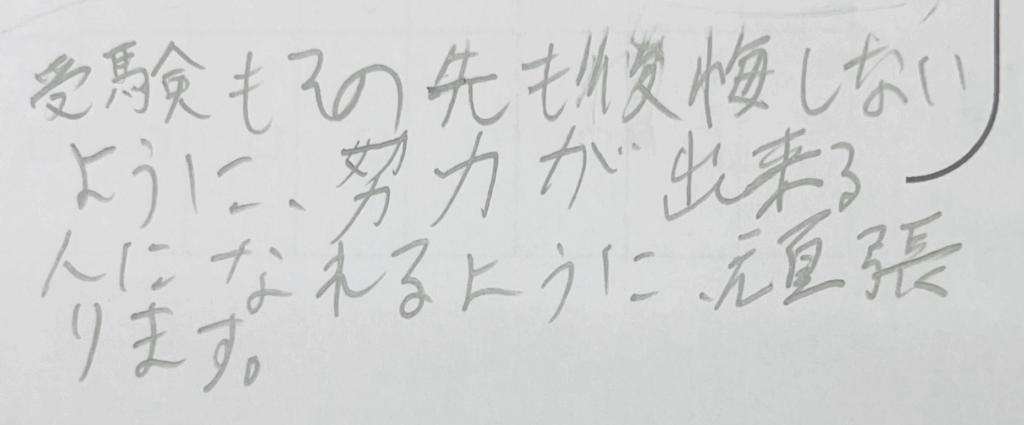 受験もその先も後悔しない
ように、努力が出来る
人になれるように、頑張
ります。